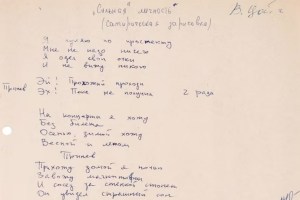 „Сильная" личность"
(сатирическая зарисовка)
Я гуляю по проспекту
Мне не надо ничего
Я одел свои очки
И не вижу никого
Припев Эй! Прохожий проходи
Эх! Пока не получил 2 раза
На концерты я хожу
Без билета
Осенью, зимой хожу
Весной и летом
Припев
Прихожу домой я ночью
Завожу магнитофон
И сосед за стенкой
Он увидел страшный сон